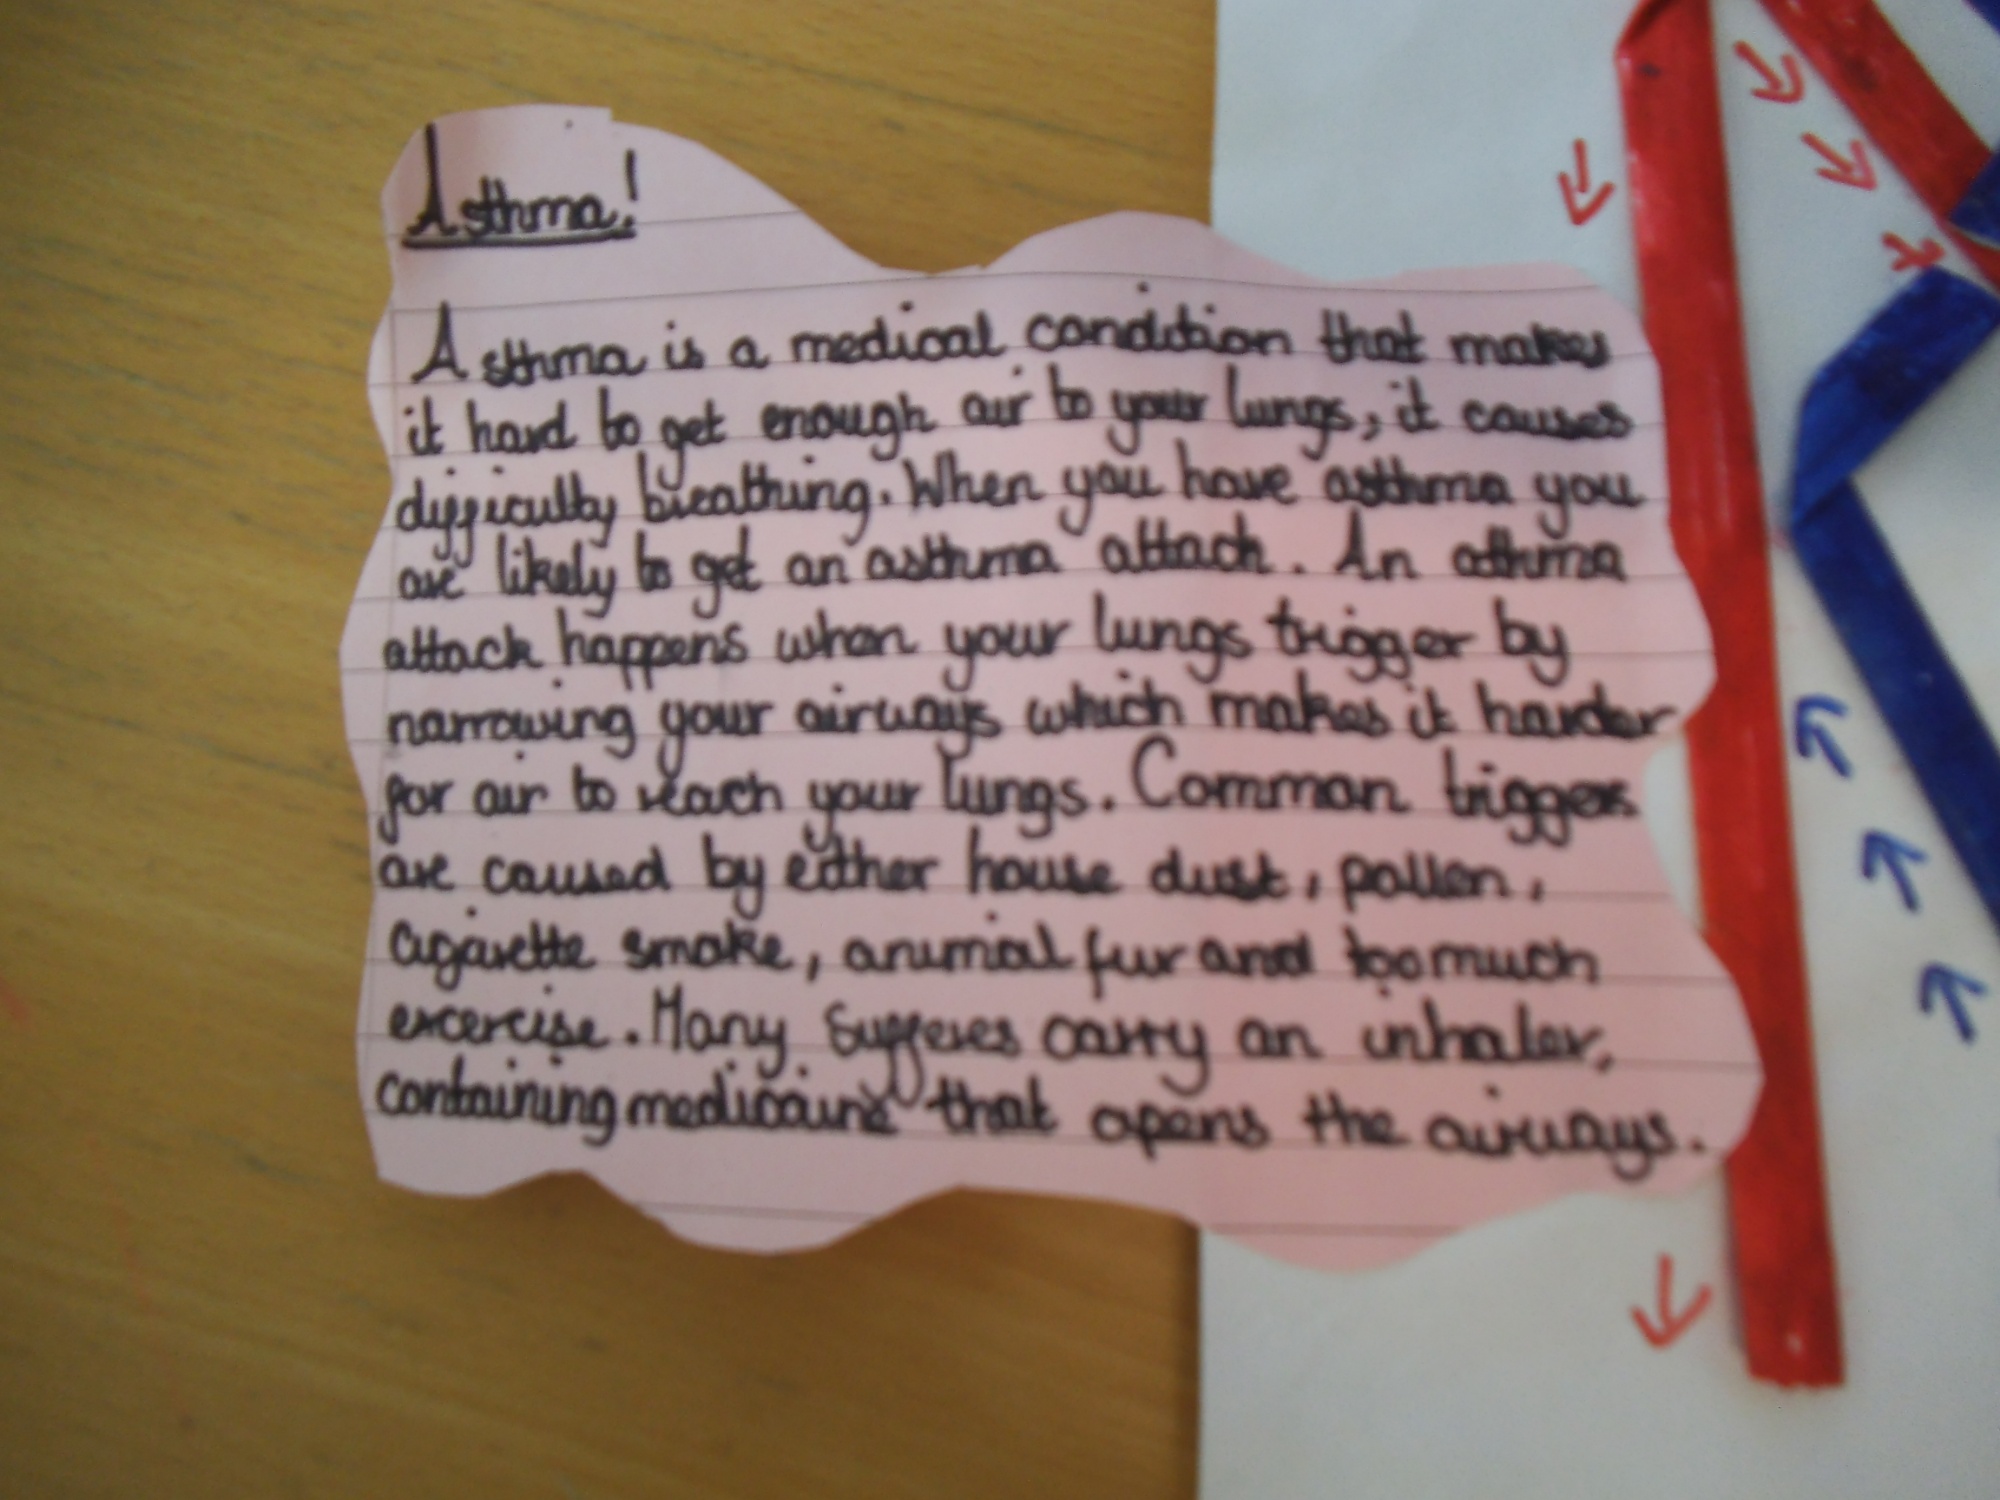 Asthma!
Asthma is a medical condition that makes
it hard to get enough air to your lungs, it causes
difficulty breathing. When you have asthma you
are likely to get an asthma attack. An athma
attack happens when your lungs trigger by
narrowing your airways which makes it harder
for air to reach your lungs. Common triggers
are caused by either house dust, pollen,
cigarette smoke, animal fur and too much
excercise. Many Sufferes carry an inhaler,
containing medicaine that opens the airways.